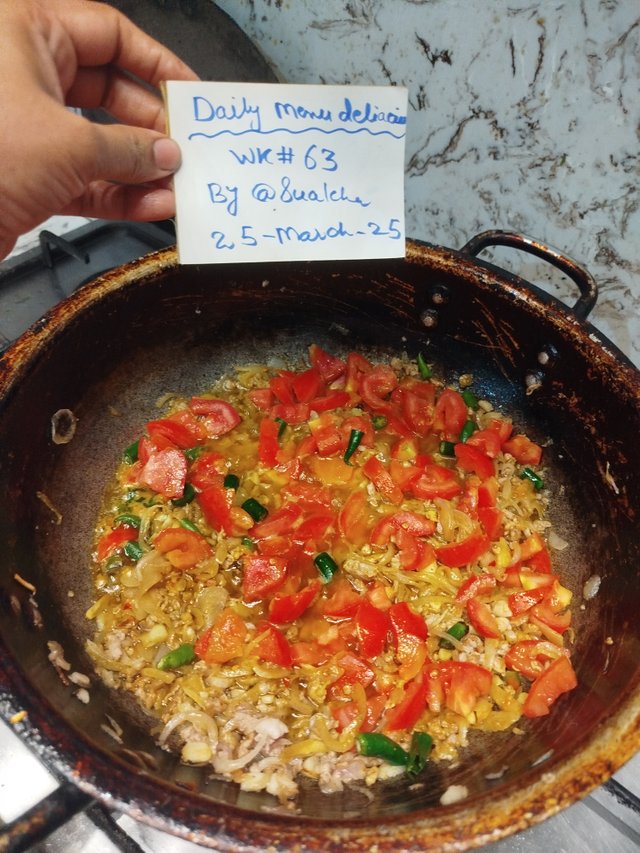 Daily Menu deliacies
WK# 63
By @Sualeha
25-March-25